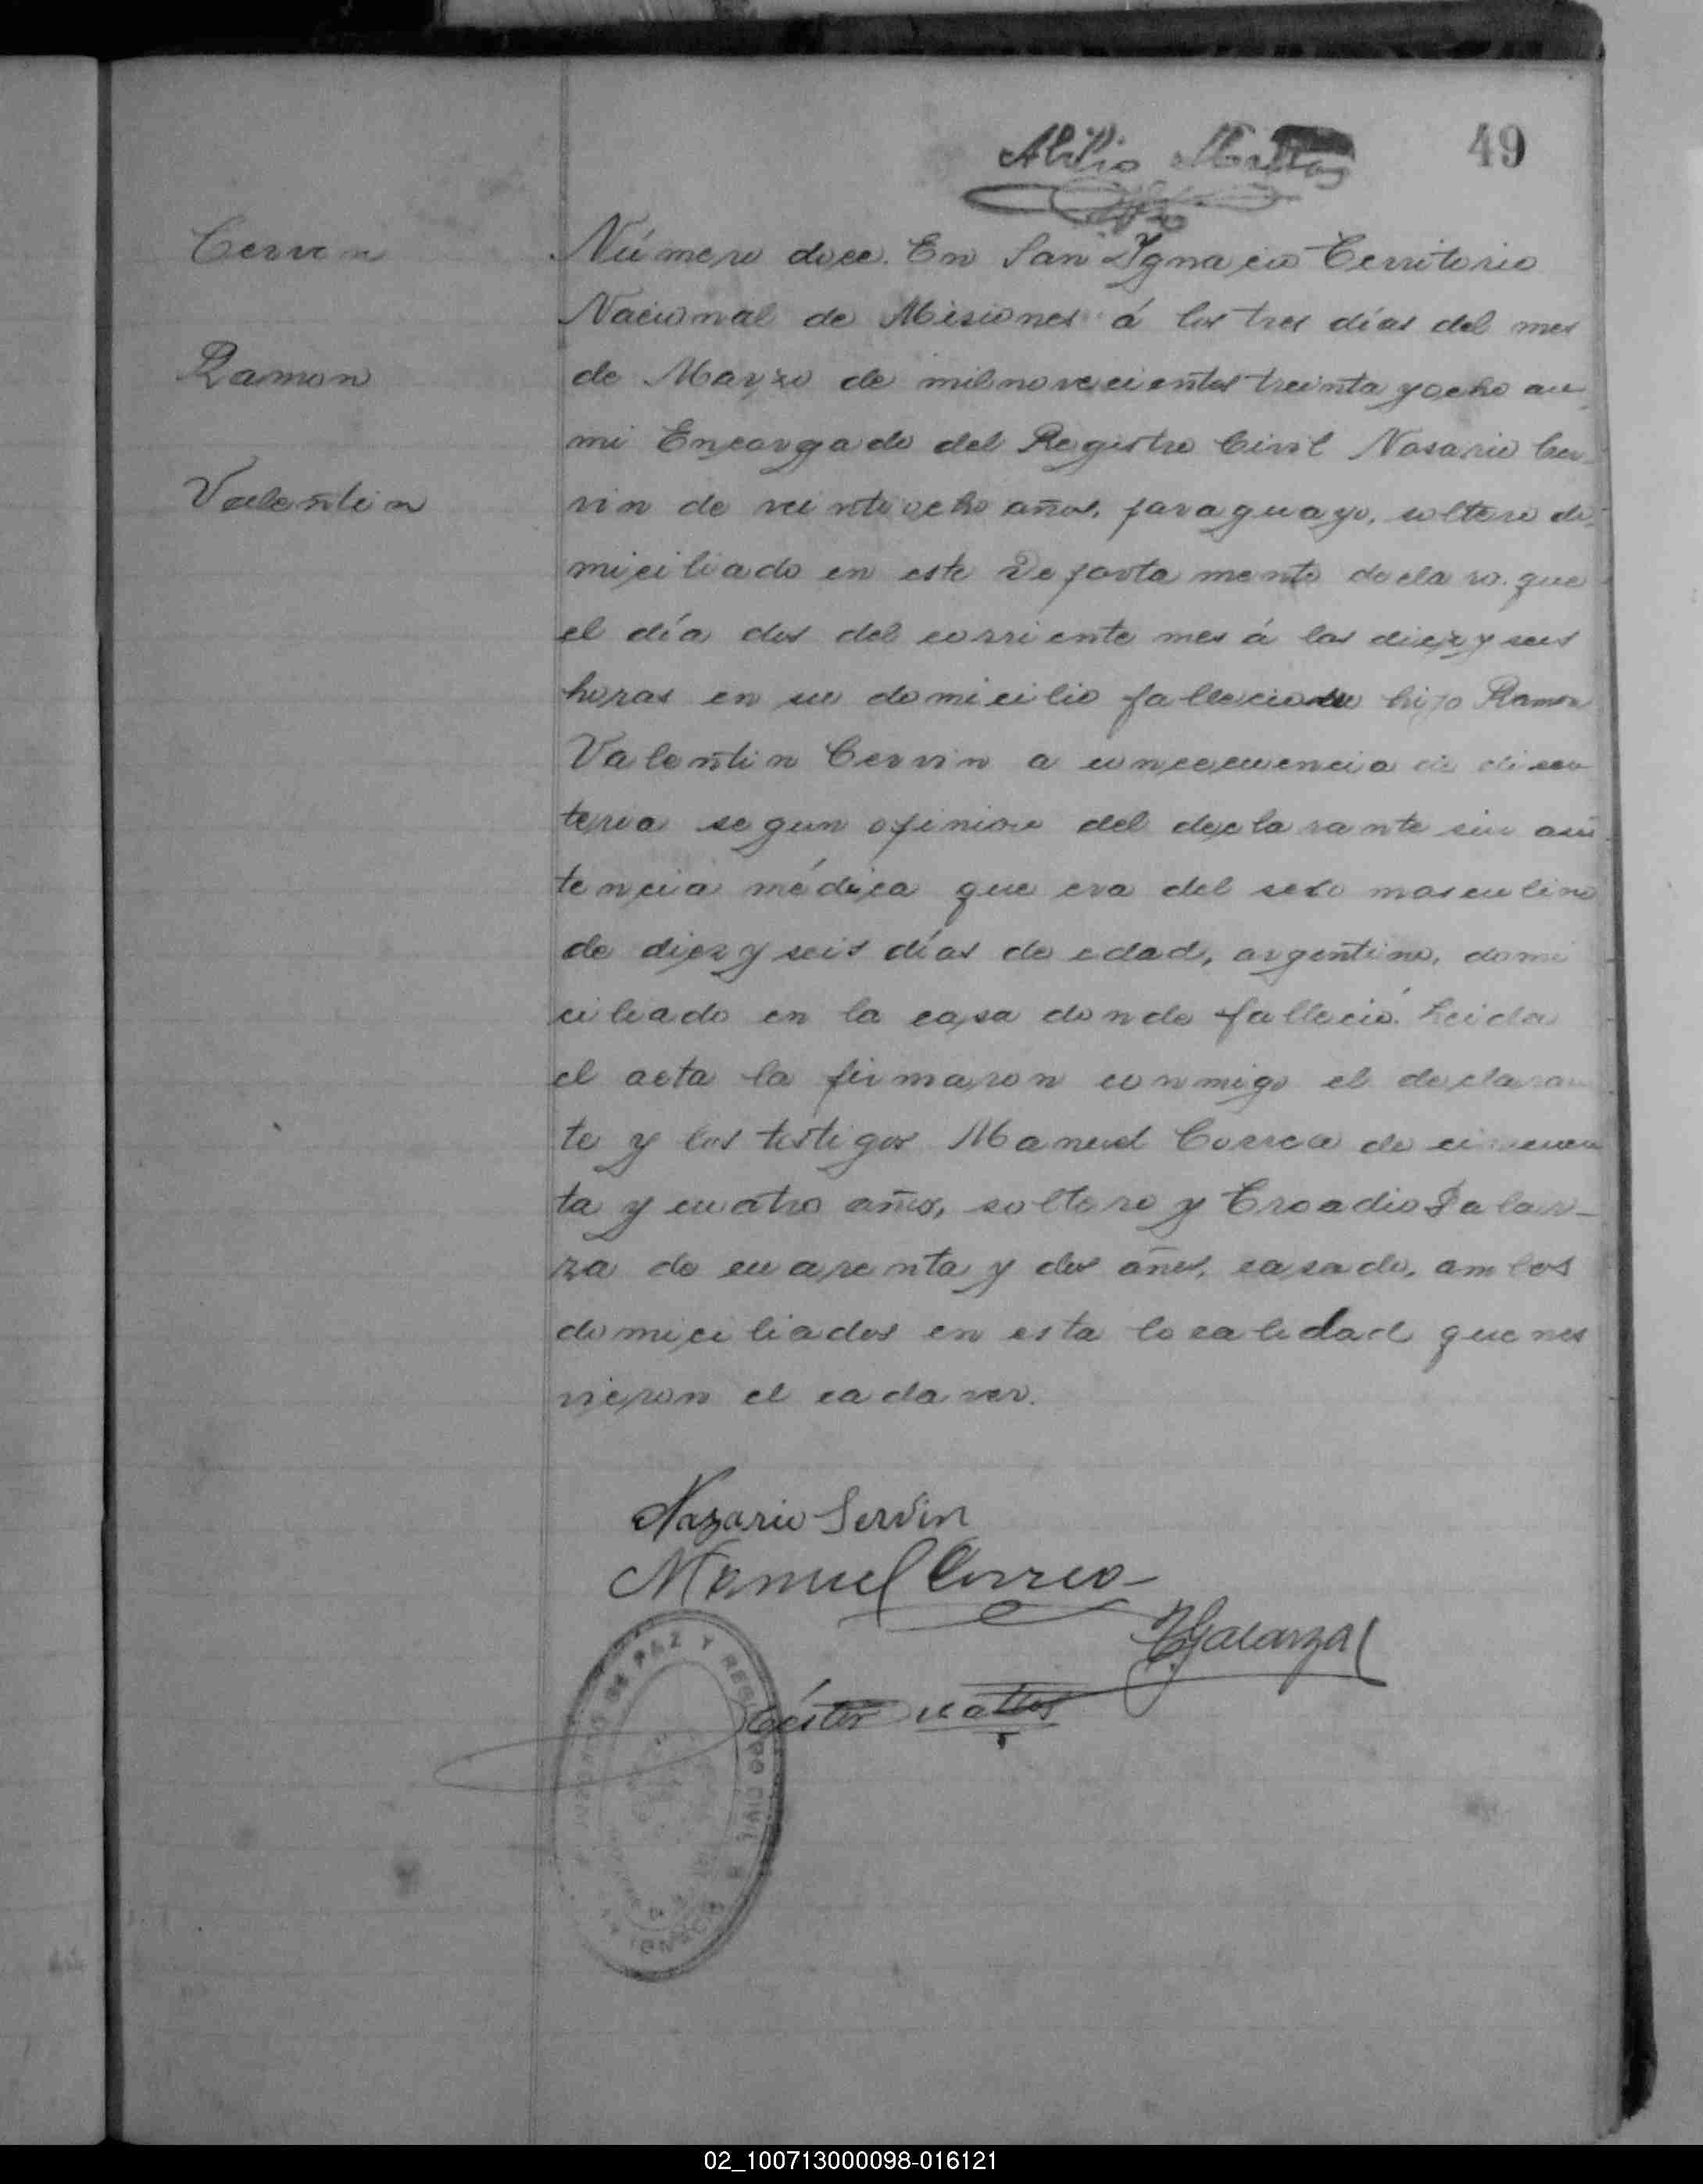 49
Cervin
Ramon
Valentin
Número doce. En San Ygnacio Territorio
Nacional de Misiones á los tres días del mes
de Marzo de milnovecientos treinta y ocho an
mi Encargado del Registro Civil Nasario Cer-
vin de veintiocho años, paraguayo, soltero do-
miciliado en este Departamento declaro que
el día dos del corriente mes á las diez y seis
horas en su domicilio fallecio su hijo Ramon
Valentin Cervin a concecuencia de disen
teria segun opinion del declarante sin asis
tencia médica que era del sexo masculino
de diez y seis días de edad, argentino, domi
ciliado en la casa donde falleció. Leida
el acta la firmaron conmigo el declaran
te y los testigos Manuel Correa de cincuen
ta y cuatro años, soltero y Croadio Galar-
za de cuarenta y dos años, casado, ambos
domiciliados en esta localidad que nes
vieron el cadaver.
Nazario Servin
Manuel Correa
Galarza
DE PAZ Y REGISTRO CIVIL
02_100713000098-016121